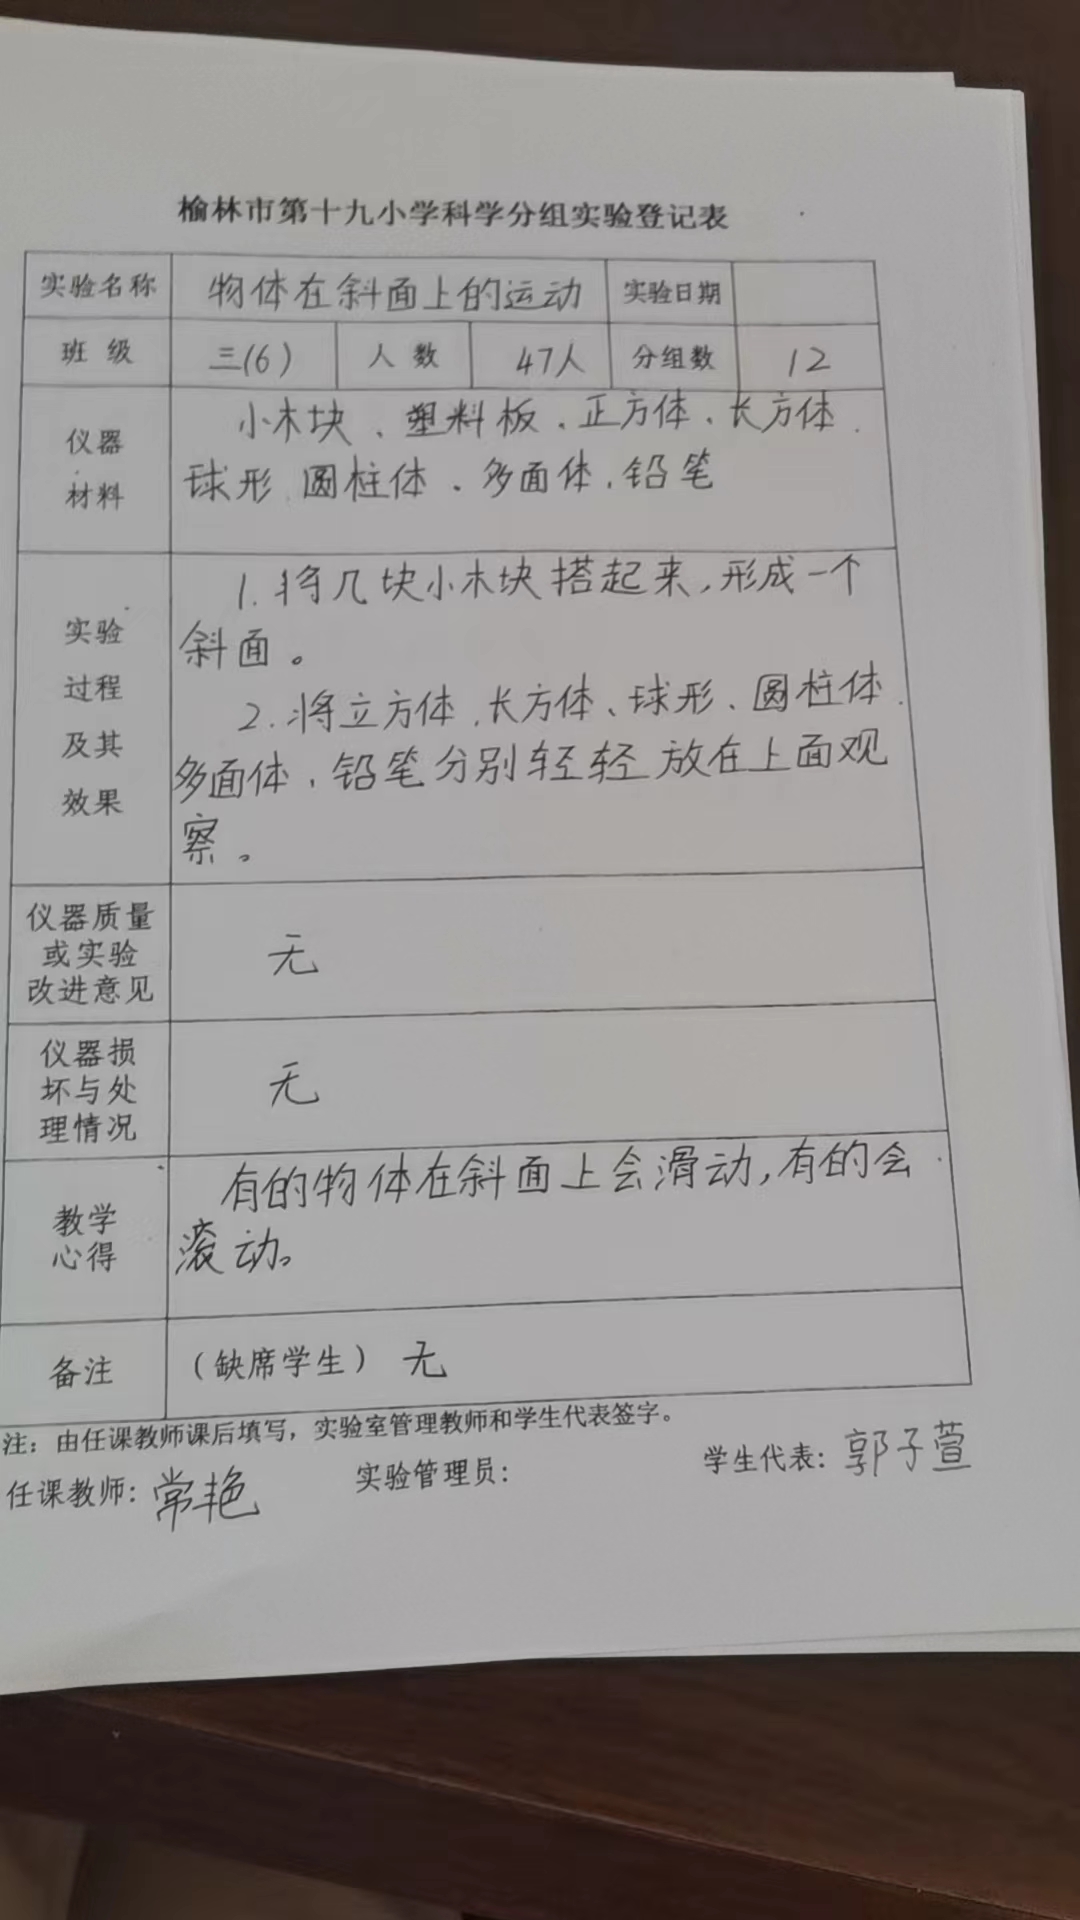 榆林市第十九小学科学分组实验登记表
实验名称 物体在斜面上的运动 实验日期
班 级 三(6) 人 数 47人 分组数 12
仪器
材料
小木块、塑料板、正方体、长方体、
球形、圆柱体、多面体、铅笔
实验
过程
及其
效果
1.将几块小木块搭起来,形成一个
斜面。
2.将立方体、长方体、球形、圆柱体、
多面体、铅笔分别轻轻放在上面观
察。
仪器质量
或实验
改进意见
无
仪器损
坏与处
理情况
无
教学
心得
有的物体在斜面上会滑动,有的会
滚动。
备注 （缺席学生） 无
注：由任课教师课后填写，实验室管理教师和学生代表签字。
任课教师: 常艳 实验管理员: 学生代表: 郭子萱